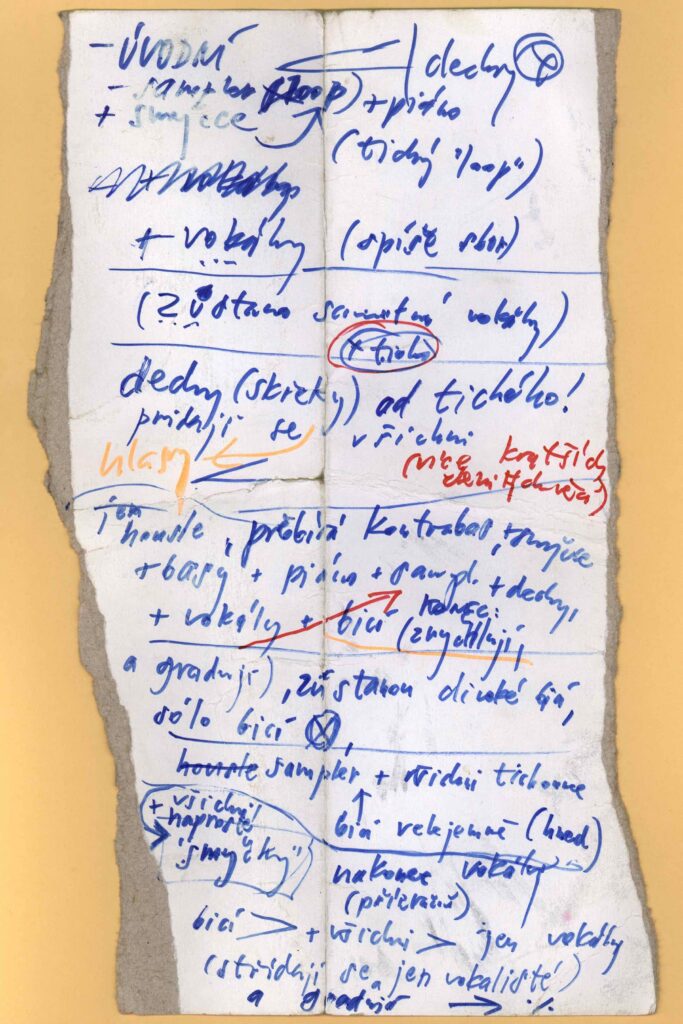 - ÚVODNÍ dechy
- sampler (loop) + piáno
+ smyčce
(tichý "loop")
+ vokály (spíše sbor)
(zůstano samotné vokály)
+ ticho
dechy (skřeky) od tichého!
přidají se všichni
hlasy
(více kratších
jen
housle, přebírá kontrabas, + smyčce
+ basy + piáno + sampl. + dechy,
+ vokály + bicí konec:
(zrychlují,
a gradují), zůstanou divoké bicí,
sólo bicí
housle sampler + všichni tichounce
+ všichni
naprosté
"smyčky"
bicí velejemně (hned)
nakonec vokály
(přízračně)
bicí > + všichni > jen vokály
(střídají se jen vokalisté)
a gradují → ./.